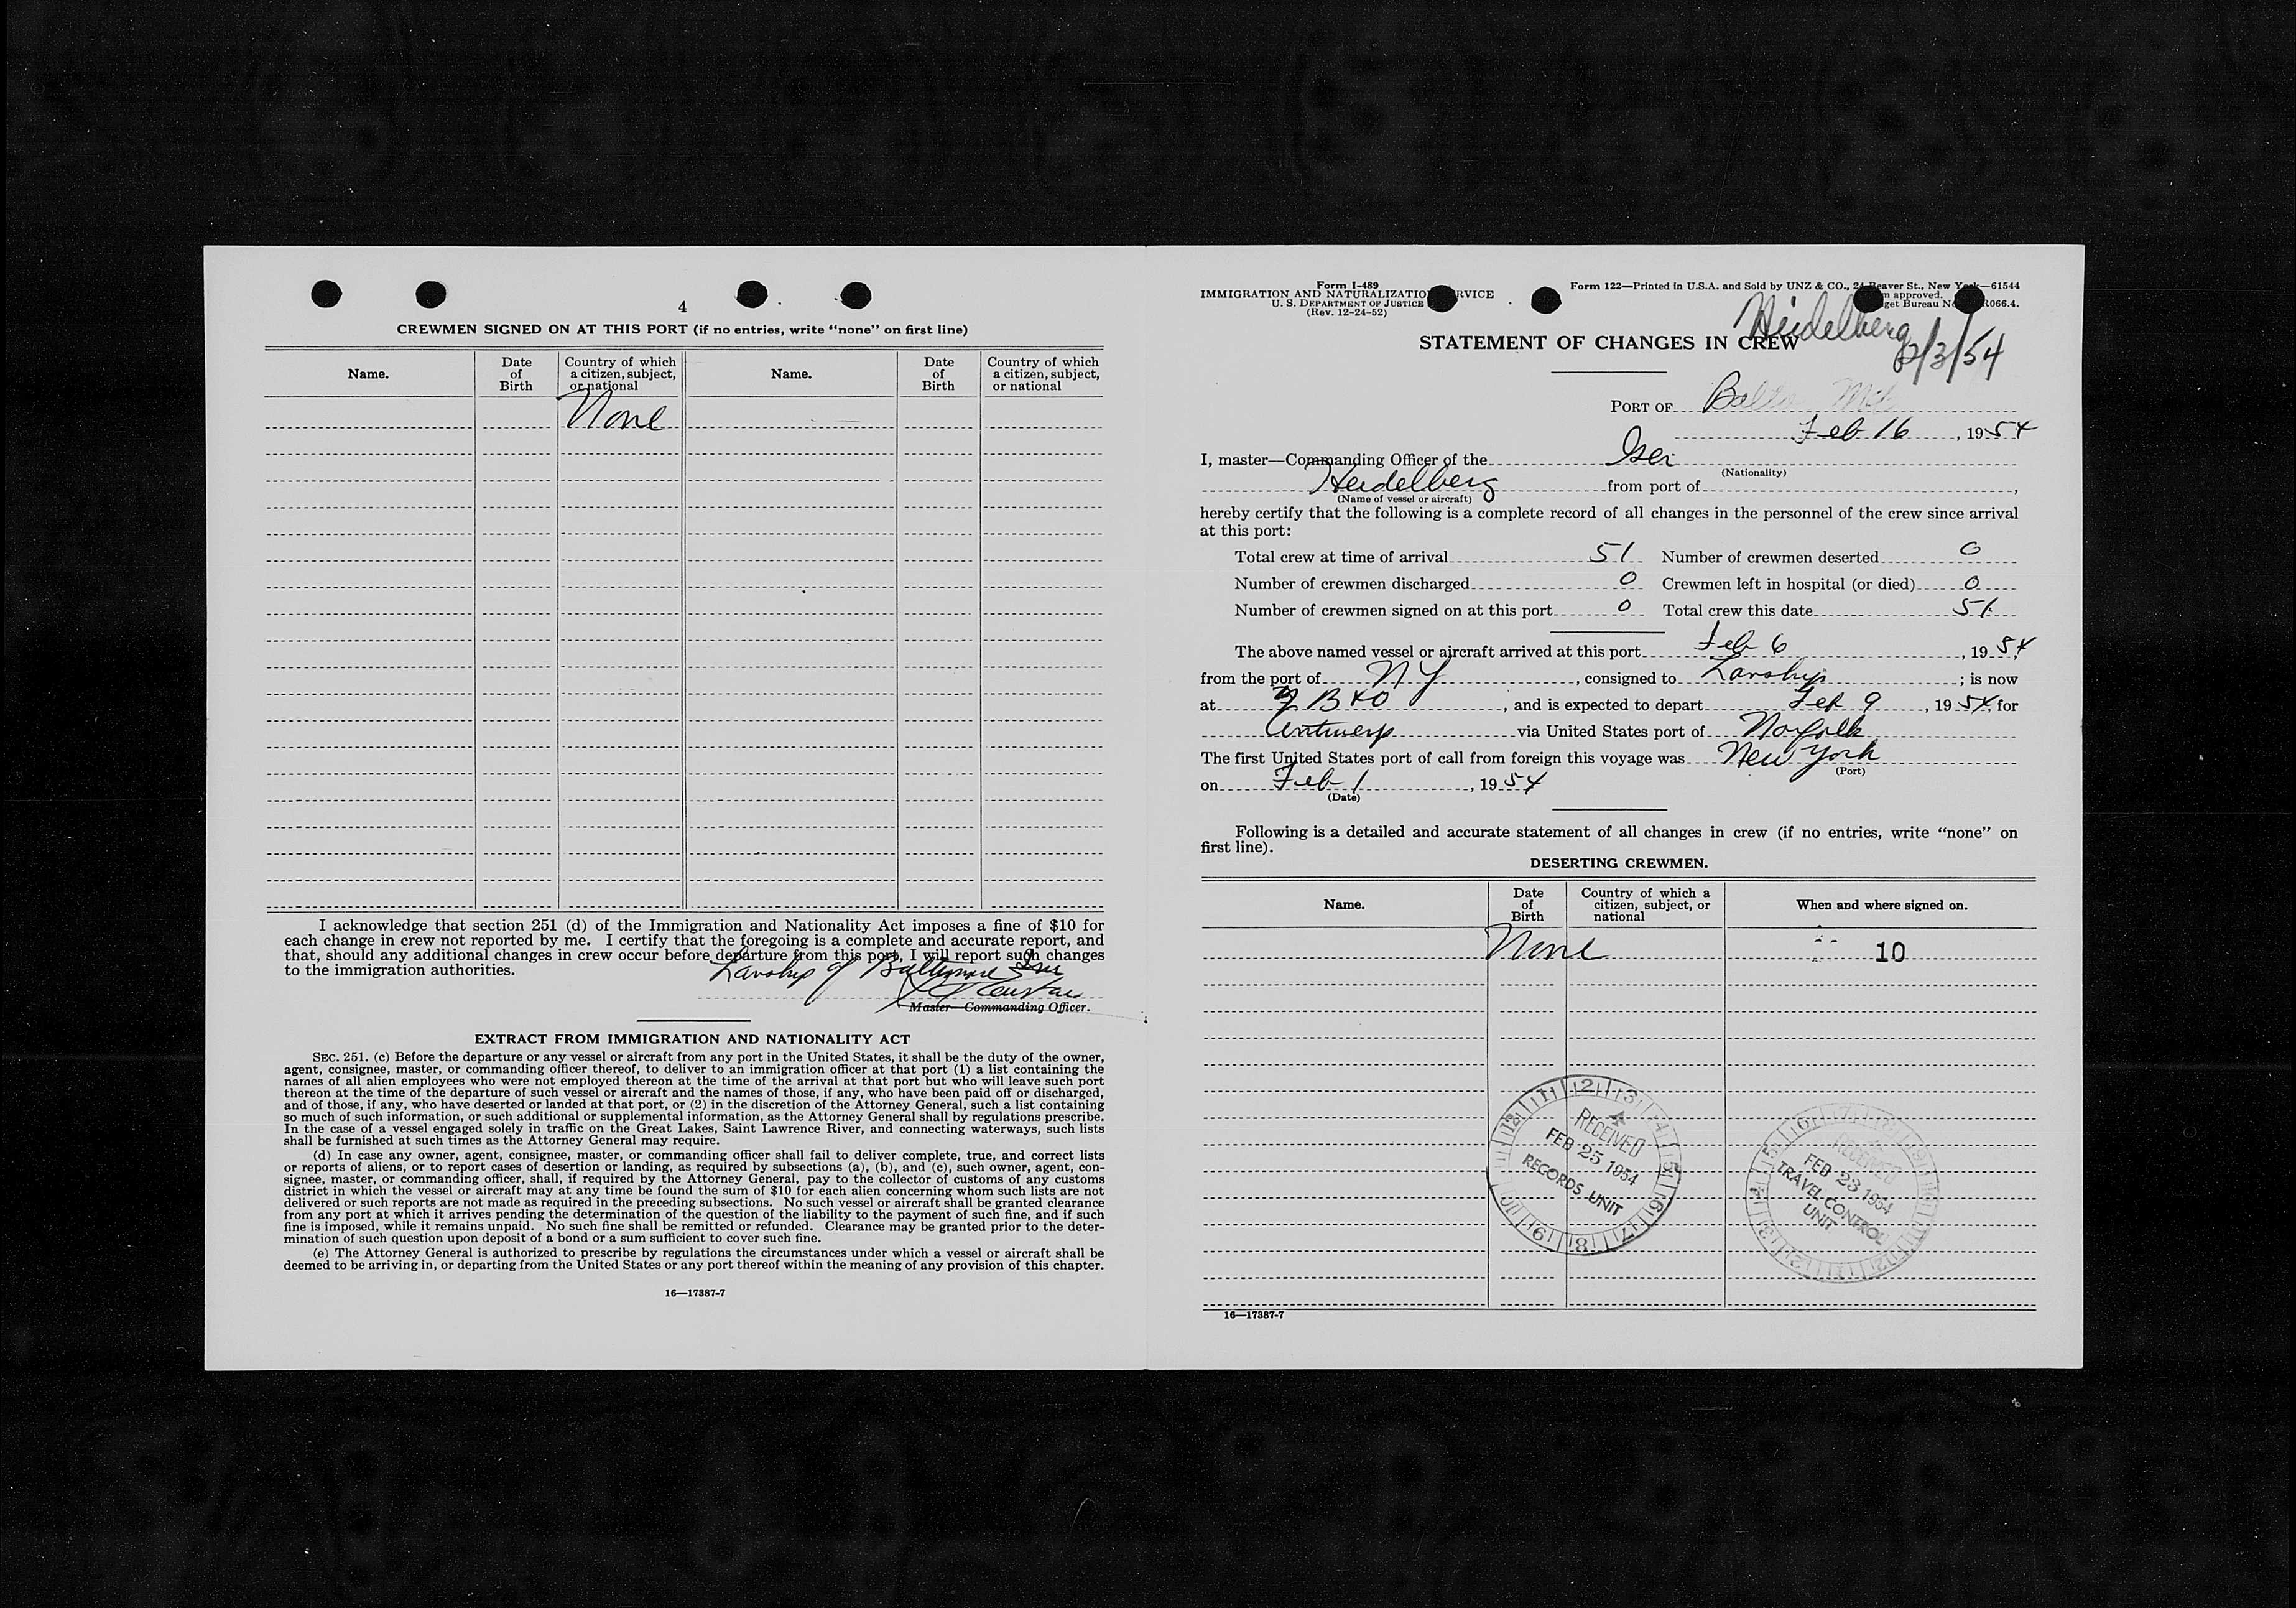 4
CREWMEN SIGNED ON AT THIS PORT (if no entries, write “none” on first line)
Name. Date of Birth Country of which a citizen, subject, or national Name. Date of Birth Country of which a citizen, subject, or national
None
I acknowledge that section 251 (d) of the Immigration and Nationality Act imposes a fine of $10 for
each change in crew not reported by me. I certify that the foregoing is a complete and accurate report, and
that, should any additional changes in crew occur before departure from this port, I will report such changes
to the immigration authorities.
Lavship of Baltimore Inc
Master—Commanding Officer.
EXTRACT FROM IMMIGRATION AND NATIONALITY ACT
SEC. 251. (c) Before the departure or any vessel or aircraft from any port in the United States, it shall be the duty of the owner,
agent, consignee, master, or commanding officer thereof, to deliver to an immigration officer at that port (1) a list containing the
names of all alien employees who were not employed thereon at the time of the arrival at that port but who will leave such port
thereon at the time of the departure of such vessel or aircraft and the names of those, if any, who have been paid off or discharged,
and of those, if any, who have deserted or landed at that port, or (2) in the discretion of the Attorney General, such a list containing
so much of such information, or such additional or supplemental information, as the Attorney General shall by regulations prescribe.
In the case of a vessel engaged solely in traffic on the Great Lakes, Saint Lawrence River, and connecting waterways, such lists
shall be furnished at such times as the Attorney General may require.
(d) In case any owner, agent, consignee, master, or commanding officer shall fail to deliver complete, true, and correct lists
or reports of aliens, or to report cases of desertion or landing, as required by subsections (a), (b), and (c), such owner, agent, con-
signee, master, or commanding officer, shall, if required by the Attorney General, pay to the collector of customs of any customs
district in which the vessel or aircraft may at any time be found the sum of $10 for each alien concerning whom such lists are not
delivered or such reports are not made as required in the preceding subsections. No such vessel or aircraft shall be granted clearance
from any port at which it arrives pending the determination of the question of the liability to the payment of such fine, and if such
fine is imposed, while it remains unpaid. No such fine shall be remitted or refunded. Clearance may be granted prior to the deter-
mination of such question upon deposit of a bond or a sum sufficient to cover such fine.
(e) The Attorney General is authorized to prescribe by regulations the circumstances under which a vessel or aircraft shall be
deemed to be arriving in, or departing from the United States or any port thereof within the meaning of any provision of this chapter.
16—17387-7
Form I-489
IMMIGRATION AND NATURALIZATIO RVICE
U. S. DEPARTMENT OF JUSTICE
(Rev. 12-24-52)
Form 122—Printed in U.S.A. and Sold by UNZ & CO., 24 Beaver St., New York—61544
approved.
get Bureau No. R066.4.
Heidelberg
2/3/54
STATEMENT OF CHANGES IN CREW
PORT OF Balto Md
Feb 16, 1954
I, master—Commanding Officer of the Ger
(Nationality)
Heidelberg from port of ,
(Name of vessel or aircraft)
hereby certify that the following is a complete record of all changes in the personnel of the crew since arrival
at this port:
Total crew at time of arrival 51 Number of crewmen deserted 0
Number of crewmen discharged 0 Crewmen left in hospital (or died) 0
Number of crewmen signed on at this port 0 Total crew this date 51
The above named vessel or aircraft arrived at this port Feb 6, 1954
from the port of N Y, consigned to Lavship; is now
at B&O, and is expected to depart Feb 9, 1954, for
Antwerp via United States port of Norfolk
The first United States port of call from foreign this voyage was New York
(Port)
on Feb 1, 1954
(Date)
Following is a detailed and accurate statement of all changes in crew (if no entries, write “none” on
first line).
DESERTING CREWMEN.
Name. Date of Birth Country of which a citizen, subject, or national When and where signed on.
None 10
RECEIVED
FEB 25 1954
RECORDS UNIT
RECEIVED
FEB 23 1954
TRAVEL CONTROL
UNIT
16—17387-7